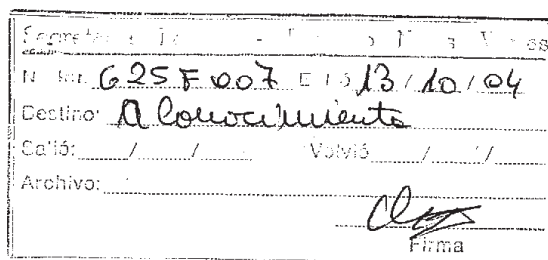 N Int. 625F007 E 13/10/04
Destino: A Conocimiento
Salió: / / Volvió / /
Archivo:
Firma